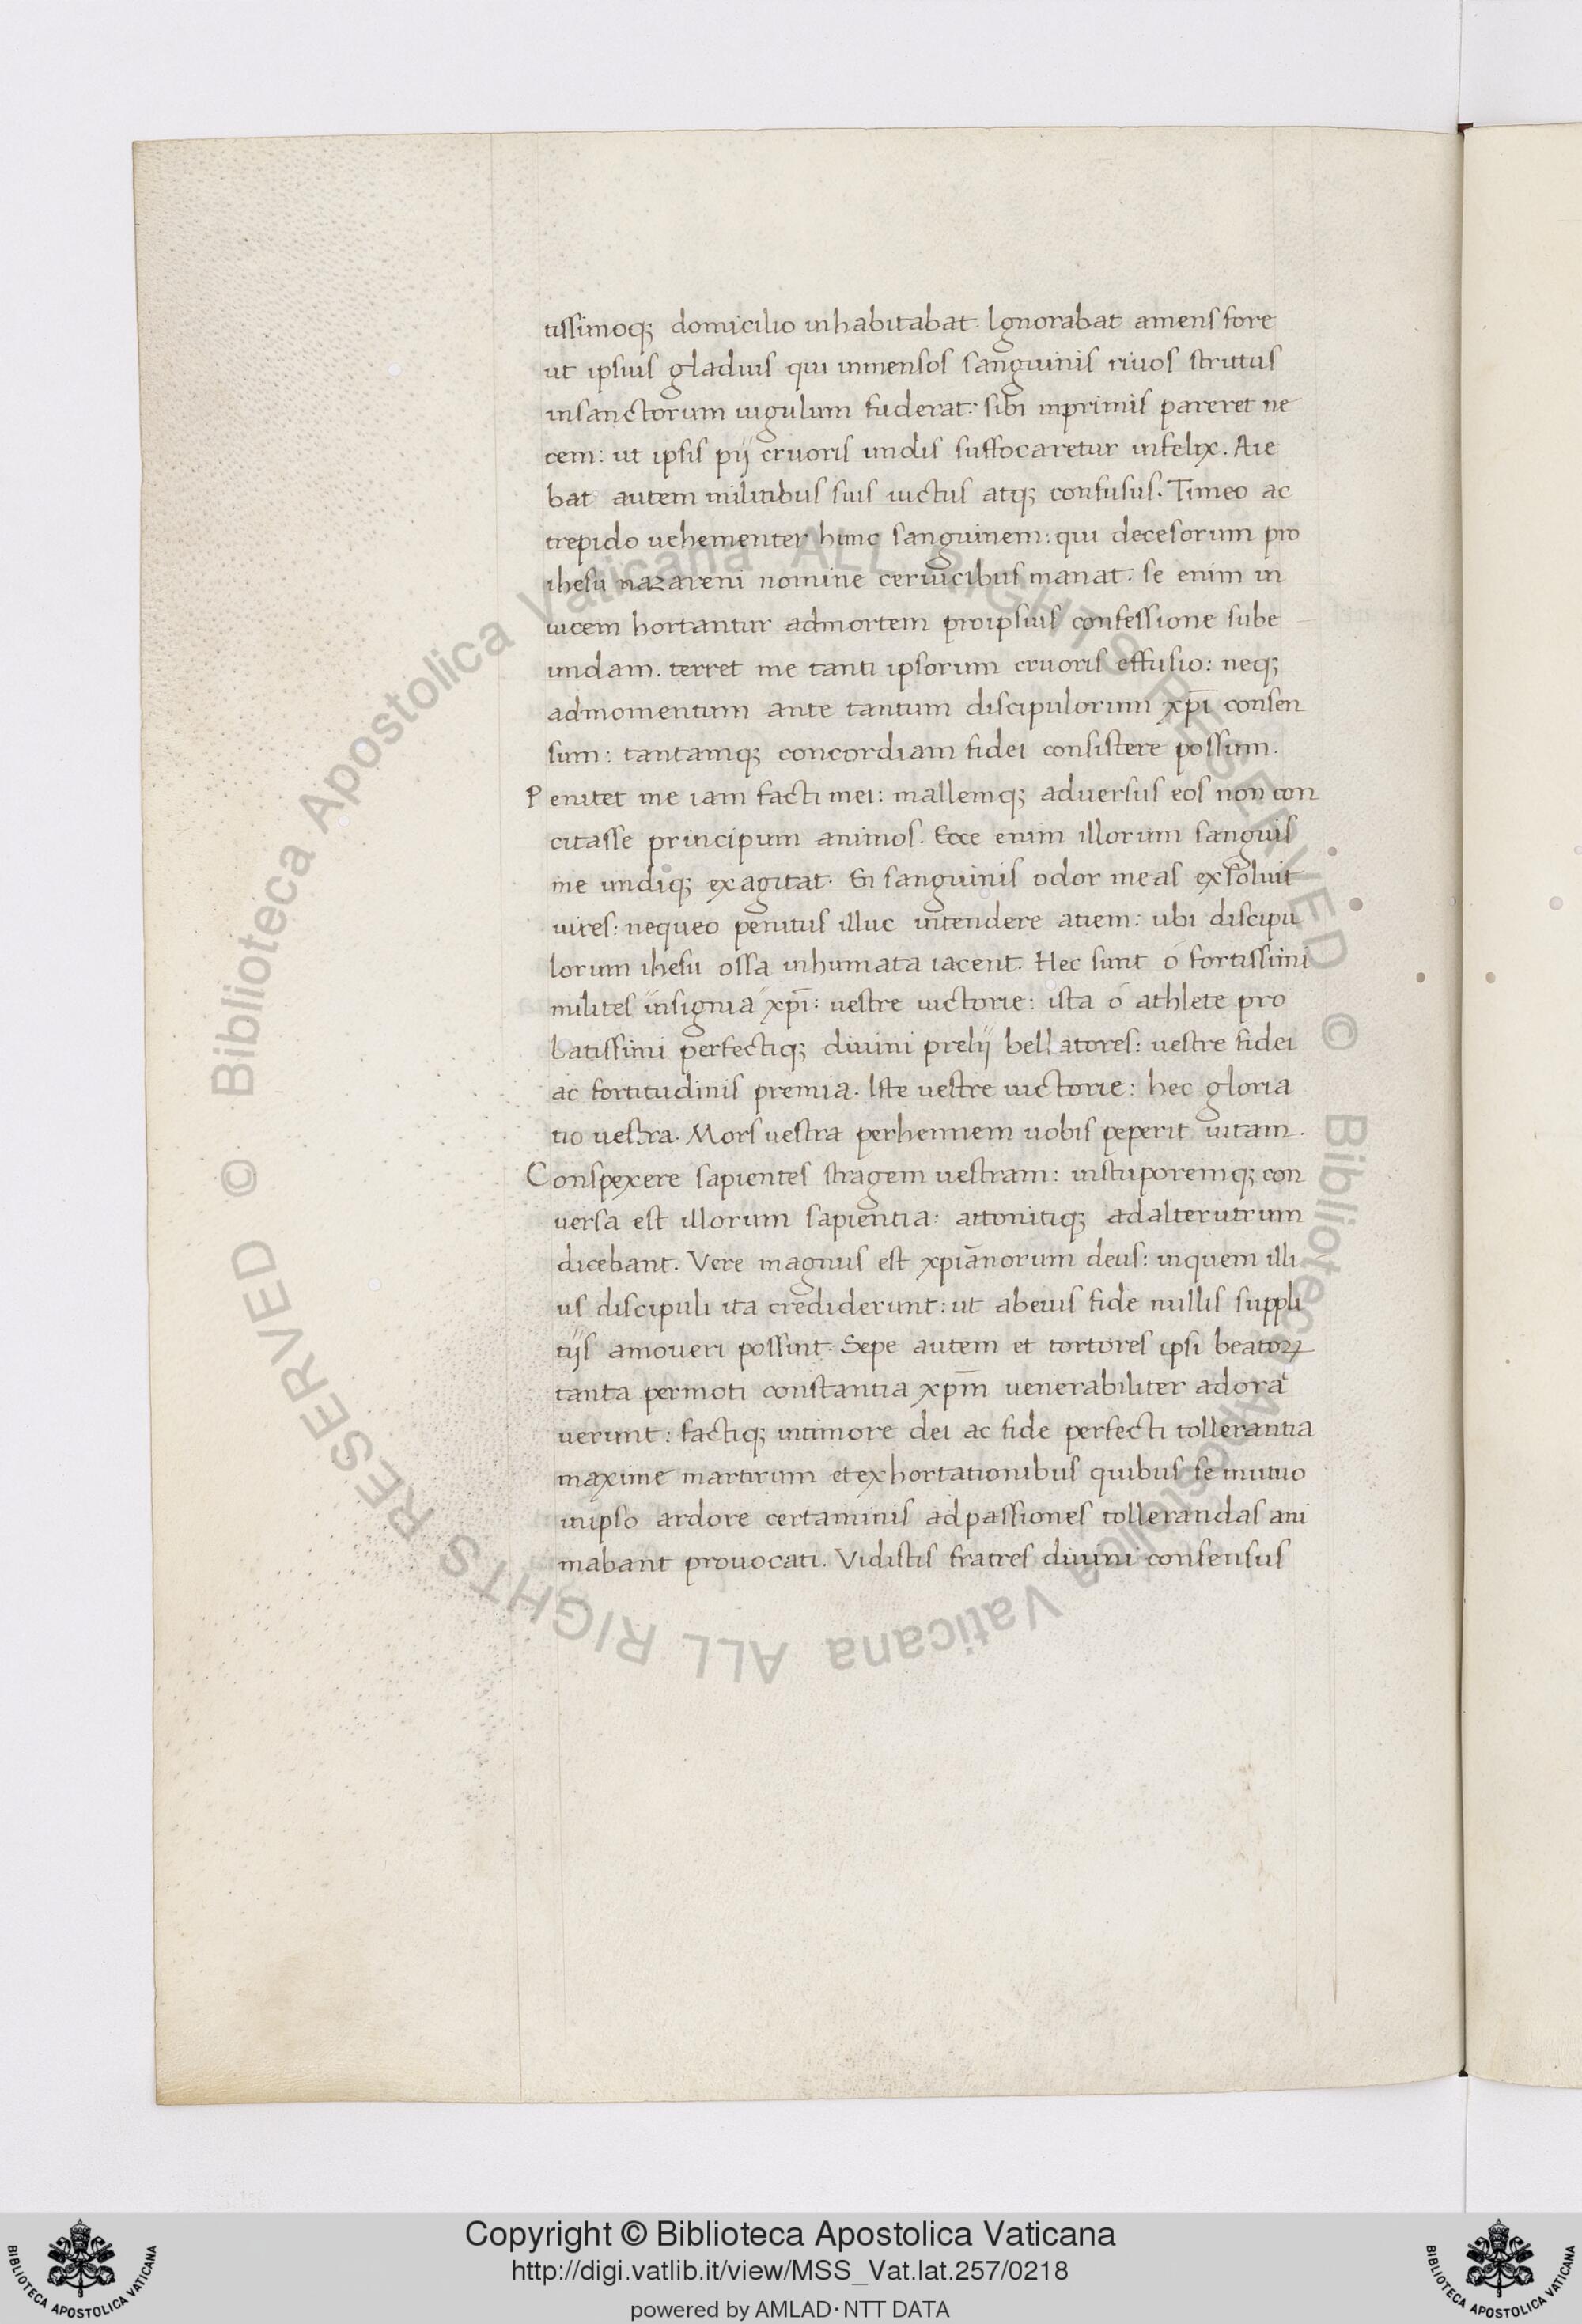 tissimoq; domicilio inhabitabat. Ignorabat amens fore
ut ipsius gladius qui inmensos sanguinis riuos strictus
insanctorum iugulum fuderat: sibi inprimis pareret ne
cem: ut ipsis pij cruoris undis suffocaretur infelix. Aie
bat autem militibus suis uictus atq; confusus. Timeo ac
trepido uehementer hunc sanguinem: qui decesorum pro
ihesu nazareni nomine ceruicibus manat. se enim in
uicem hortantur admortem proipsius confessione sube
undam. terret me tanti ipsorum cruoris effusio: neq;
admomentum ante tantum discipulorum xp̄i consen
sum: tantamq; concordiam fidei consistere possum.
Penitet me iam facti mei: mallemq; aduersus eos non con
citasse principum animos. Ecce enim illorum sanguis
me undiq; exagitat. En sanguinis odor meas exsoluit
uires: nequeo penitus illuc intendere aciem: ubi discipu
lorum ihesu ossa inhumata iacent. Hec sunt ó fortissimi
milites insignia xp̄i: uestre uictorie: ista ó athlete pro
batissimi perfectiq; diuini prelij bellatores: uestre fidei
ac fortitudinis premia. Iste uestre uictorie: hec gloria
tio uestra. Mors uestra perhennem uobis peperit uitam.
Conspexere sapientes stragem uestram: instuporemq; con
uersa est illorum sapientia: attonitiq; adalterutrum
dicebant. Vere magnus est xpiānorum deus: inquem illi
us discipuli ita crediderunt: ut abeius fide nullis suppli
tijs amoueri possint. Sepe autem et tortores ipsi beatoꝝ
tanta permoti constantia xpm̄ uenerabiliter adora
uerunt: factiq; intimore dei ac fide perfecti tollerantia
maxime martirum et exhortationibus quibus se mutuo
inipso ardore certaminis adpassiones tollerandas ani
mabant prouocati. Vidistis fratres diuini consensus
© Biblioteca Apostolica Vaticana ALL RIGHTS RESERVED © Biblioteca Apostolica Vaticana ALL RIGHTS RESERVED
Copyright © Biblioteca Apostolica Vaticana
http://digi.vatlib.it/view/MSS_Vat.lat.257/0218
powered by AMLAD·NTT DATA
BIBLIOTECA APOSTOLICA VATICANA
BIBLIOTECA APOSTOLICA VATICANA